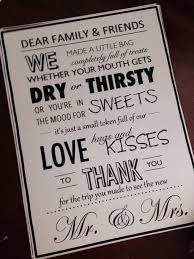 DEAR FAMILY & FRIENDS
WE MADE A LITTLE BAG
completely full of treats
WHETHER YOUR MOUTH GETS
DRY or THIRSTY
OR YOU'RE IN
THE MOOD FOR SWEETS
it's just a small token full of our
LOVE hugs and KISSES
TO THANK YOU
for the trip you made to see the new
Mr. & Mrs.